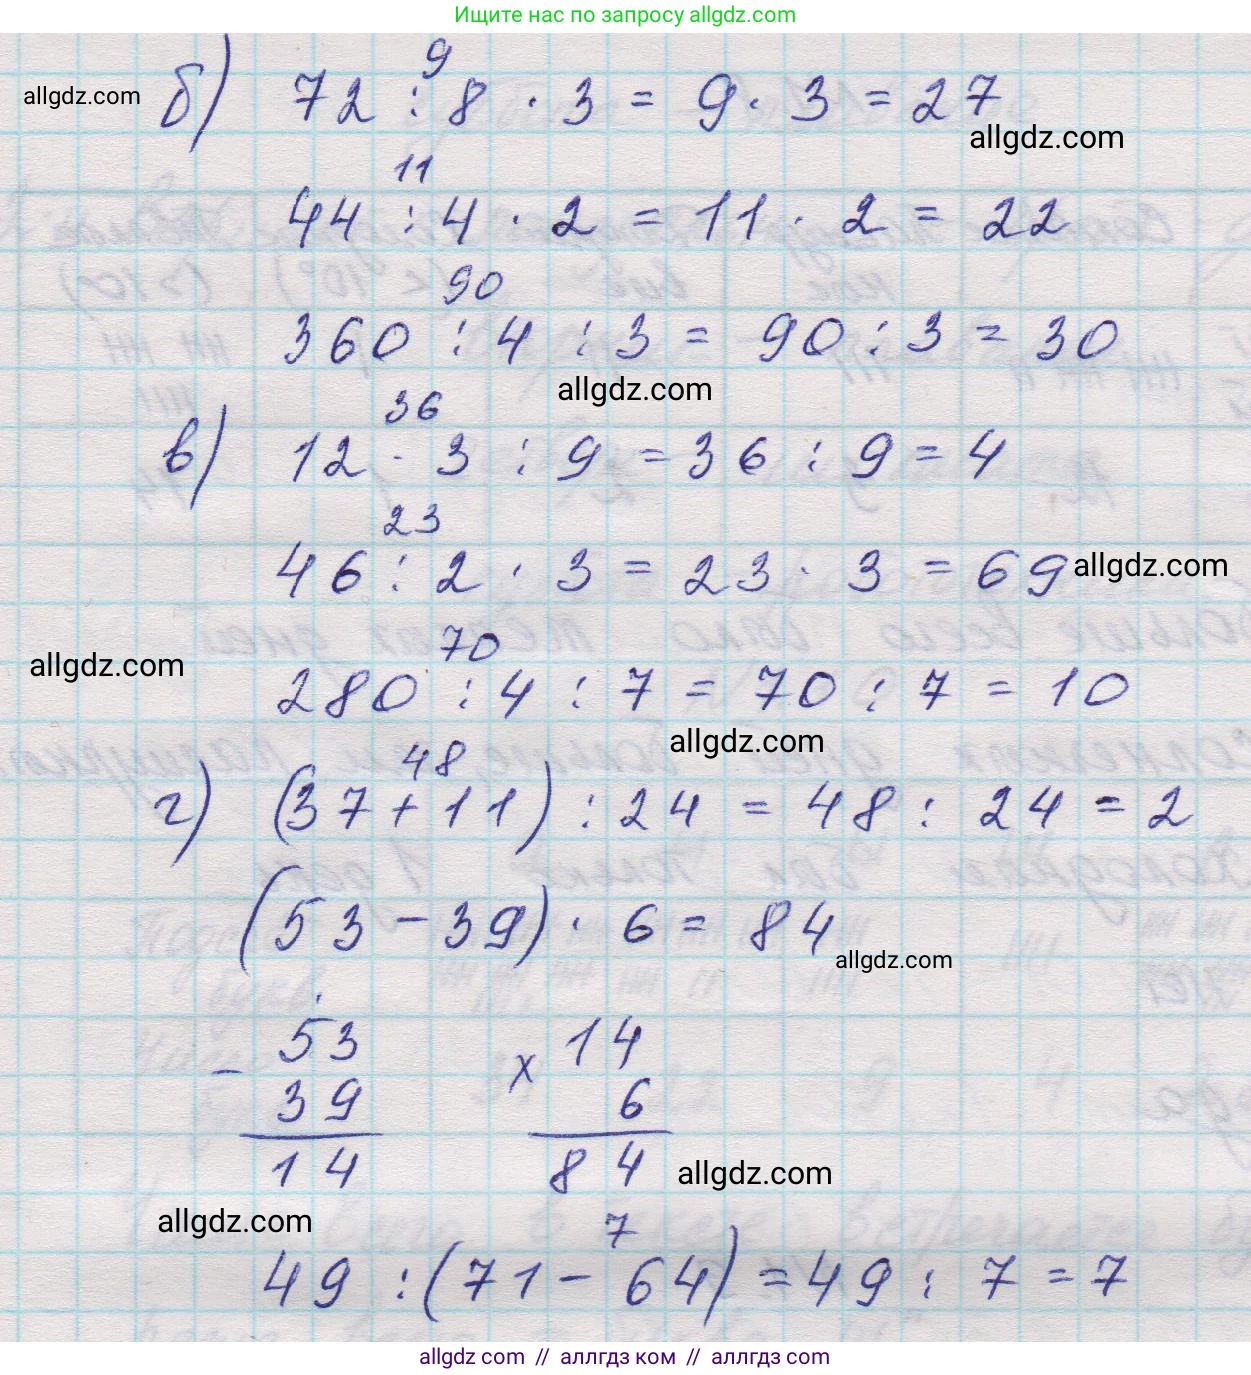 Ищите нас по запросу allgdz.com
9
allgdz.com б) 72 : 8 · 3 = 9 · 3 = 27
allgdz.com
11
44 : 4 · 2 = 11 · 2 = 22
90
360 : 4 : 3 = 90 : 3 = 30
allgdz.com
36
в) 12 · 3 : 9 = 36 : 9 = 4
23
46 : 2 · 3 = 23 · 3 = 69 allgdz.com
70
allgdz.com
280 : 4 : 7 = 70 : 7 = 10
allgdz.com
48
г) (37 + 11) : 24 = 48 : 24 = 2
(53 - 39) · 6 = 84
allgdz.com
- 53 x 14
39 6
14 84 allgdz.com
allgdz.com
7
49 : (71 - 64) = 49 : 7 = 7
allgdz.com // аллгдз ком // аллгдз.com